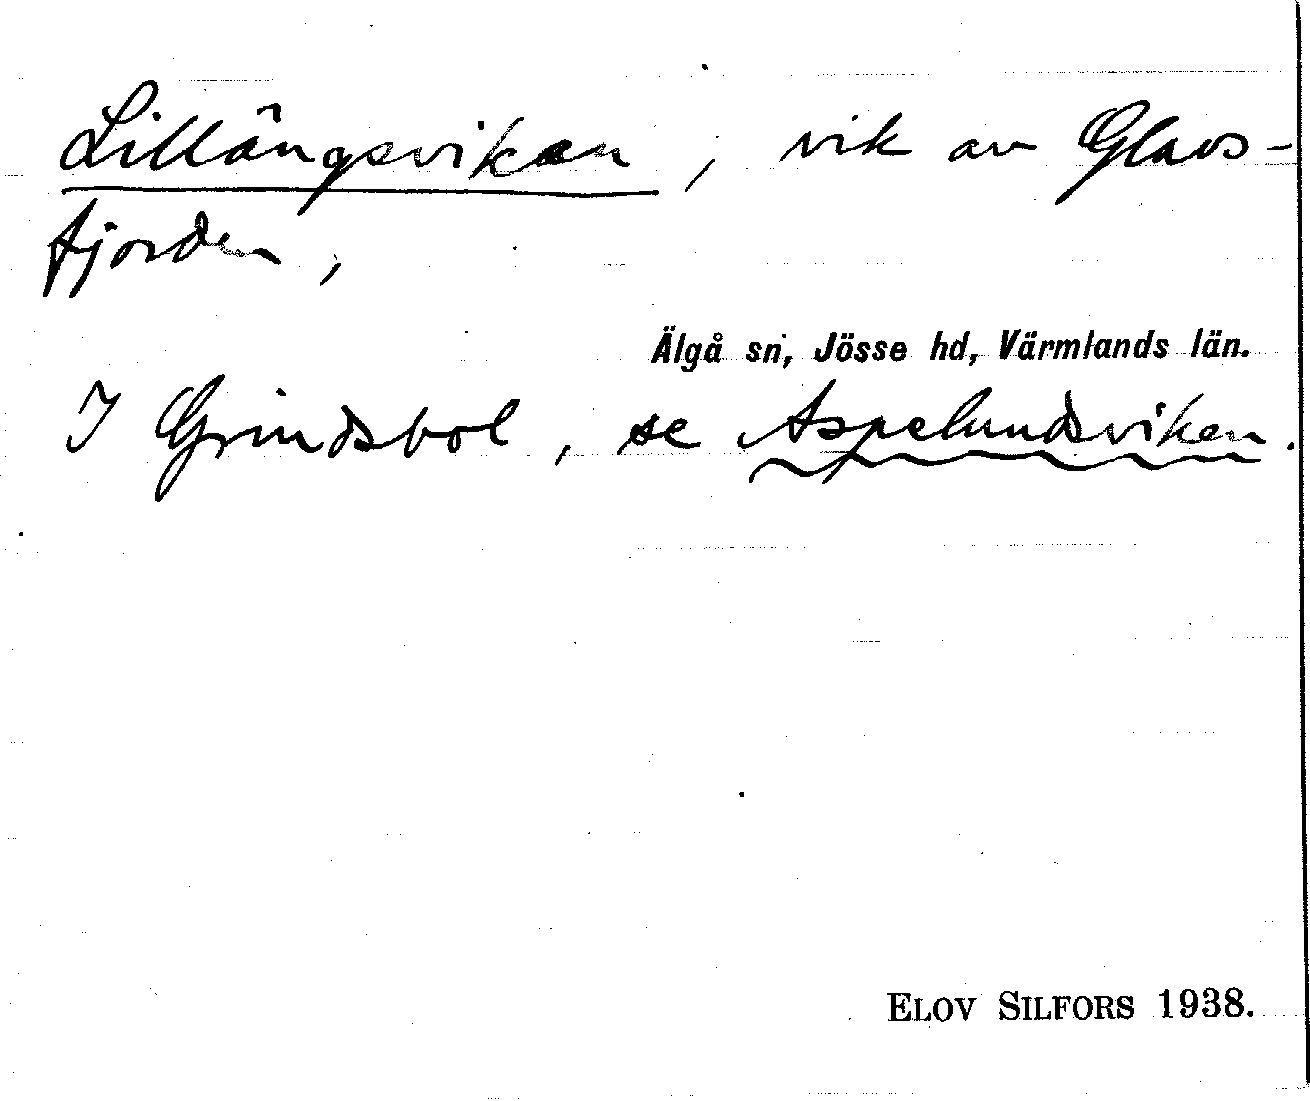 Lillängsviken, vik av Glavs-
fjorden,
Älgå sn, Jösse hd, Värmlands län.
I Grindsbol, se Aspelundsviken.
ELOV SILFORS 1938.